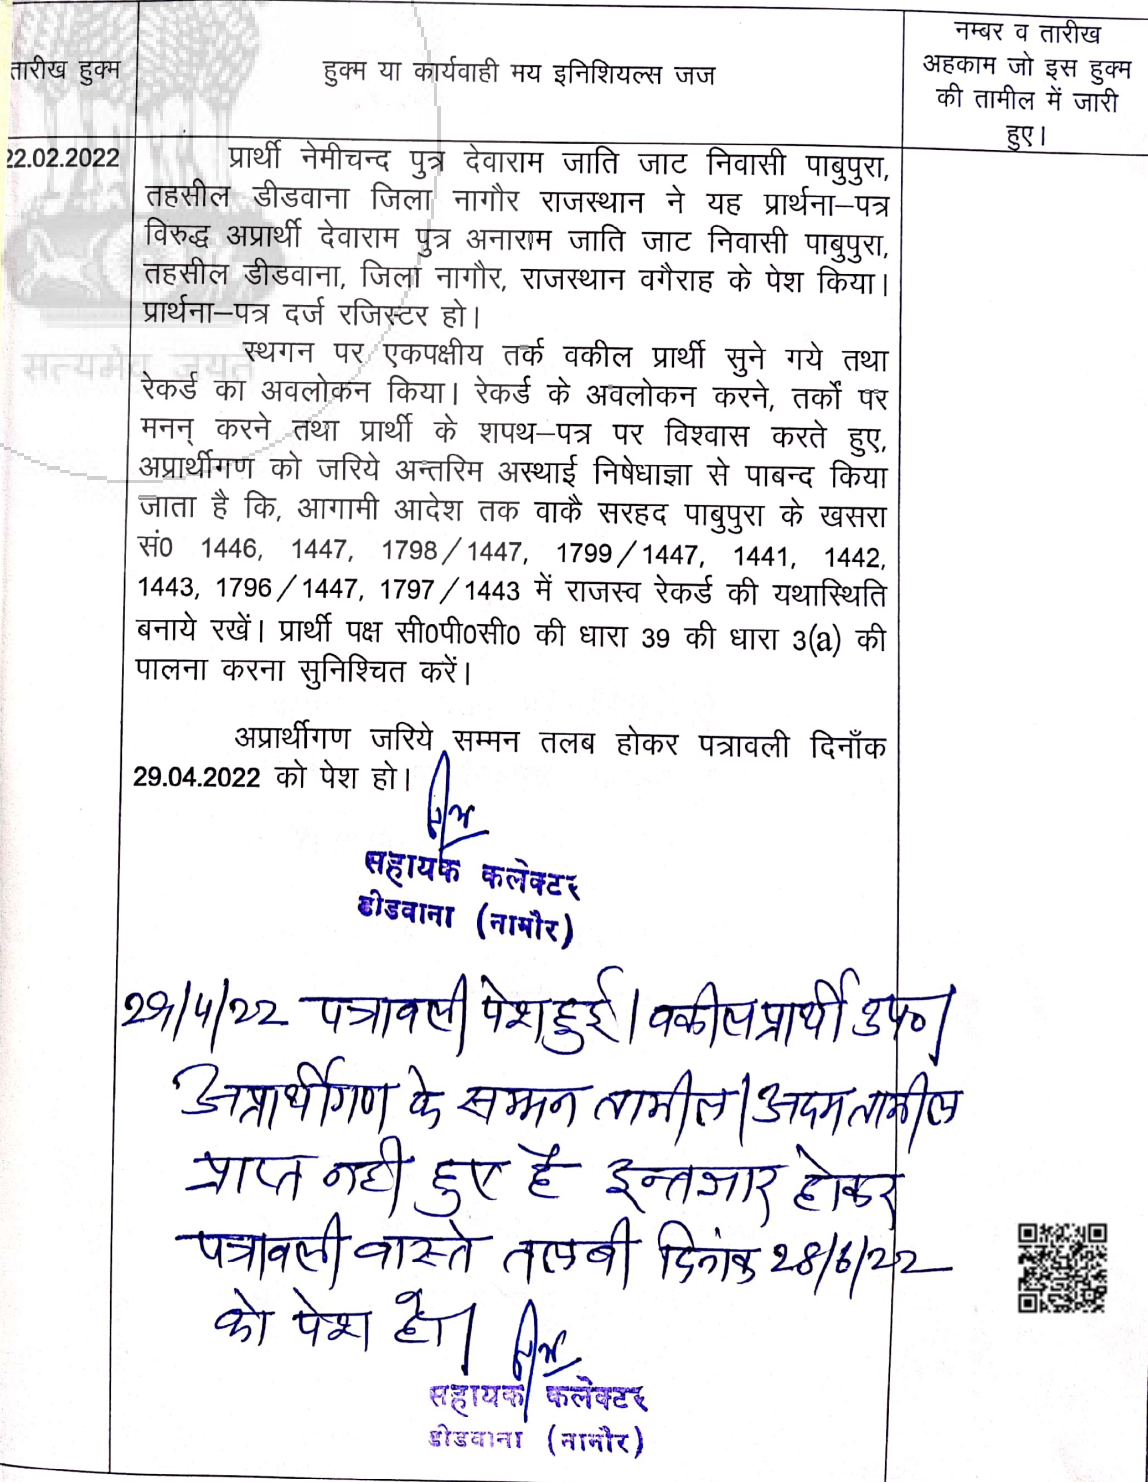 तारीख हुक्म
हुक्म या कार्यवाही मय इनिशियल्स जज
नम्बर व तारीख
अहकाम जो इस हुक्म
की तामील में जारी
हुए।
22.02.2022
प्रार्थी नेमीचन्द पुत्र देवाराम जाति जाट निवासी पाबुपुरा,
तहसील डीडवाना जिला नागौर राजस्थान ने यह प्रार्थना–पत्र
विरुद्ध अप्रार्थी देवाराम पुत्र अनाराम जाति जाट निवासी पाबुपुरा,
तहसील डीडवाना, जिला नागौर, राजस्थान वगैराह के पेश किया।
प्रार्थना–पत्र दर्ज रजिस्टर हो।
सत्यमेव जयते
स्थगन पर एकपक्षीय तर्क वकील प्रार्थी सुने गये तथा
रेकर्ड का अवलोकन किया। रेकर्ड के अवलोकन करने, तर्कों पर
मनन् करने तथा प्रार्थी के शपथ–पत्र पर विश्वास करते हुए,
अप्रार्थीगण को जरिये अन्तरिम अस्थाई निषेधाज्ञा से पाबन्द किया
जाता है कि, आगामी आदेश तक वाकै सरहद पाबुपुरा के खसरा
सं0 1446, 1447, 1798/1447, 1799/1447, 1441, 1442,
1443, 1796/1447, 1797/1443 में राजस्व रेकर्ड की यथास्थिति
बनाये रखें। प्रार्थी पक्ष सी0पी0सी0 की धारा 39 की धारा 3(a) की
पालना करना सुनिश्चित करें।
अप्रार्थीगण जरिये सम्मन तलब होकर पत्रावली दिनाँक
29.04.2022 को पेश हो।
सहायक कलेक्टर
डीडवाना (नागौर)
29/4/22 पत्रावली पेश हुई। वकील प्रार्थी उप०।
अप्रार्थीगण के सम्मन तामील/अदम तामील
प्राप्त नही हुए है इन्तजार होकर
पत्रावली वास्ते तलबी दिनांक 28/6/22
को पेश हो।
सहायक कलेक्टर
डीडवाना (नागौर)